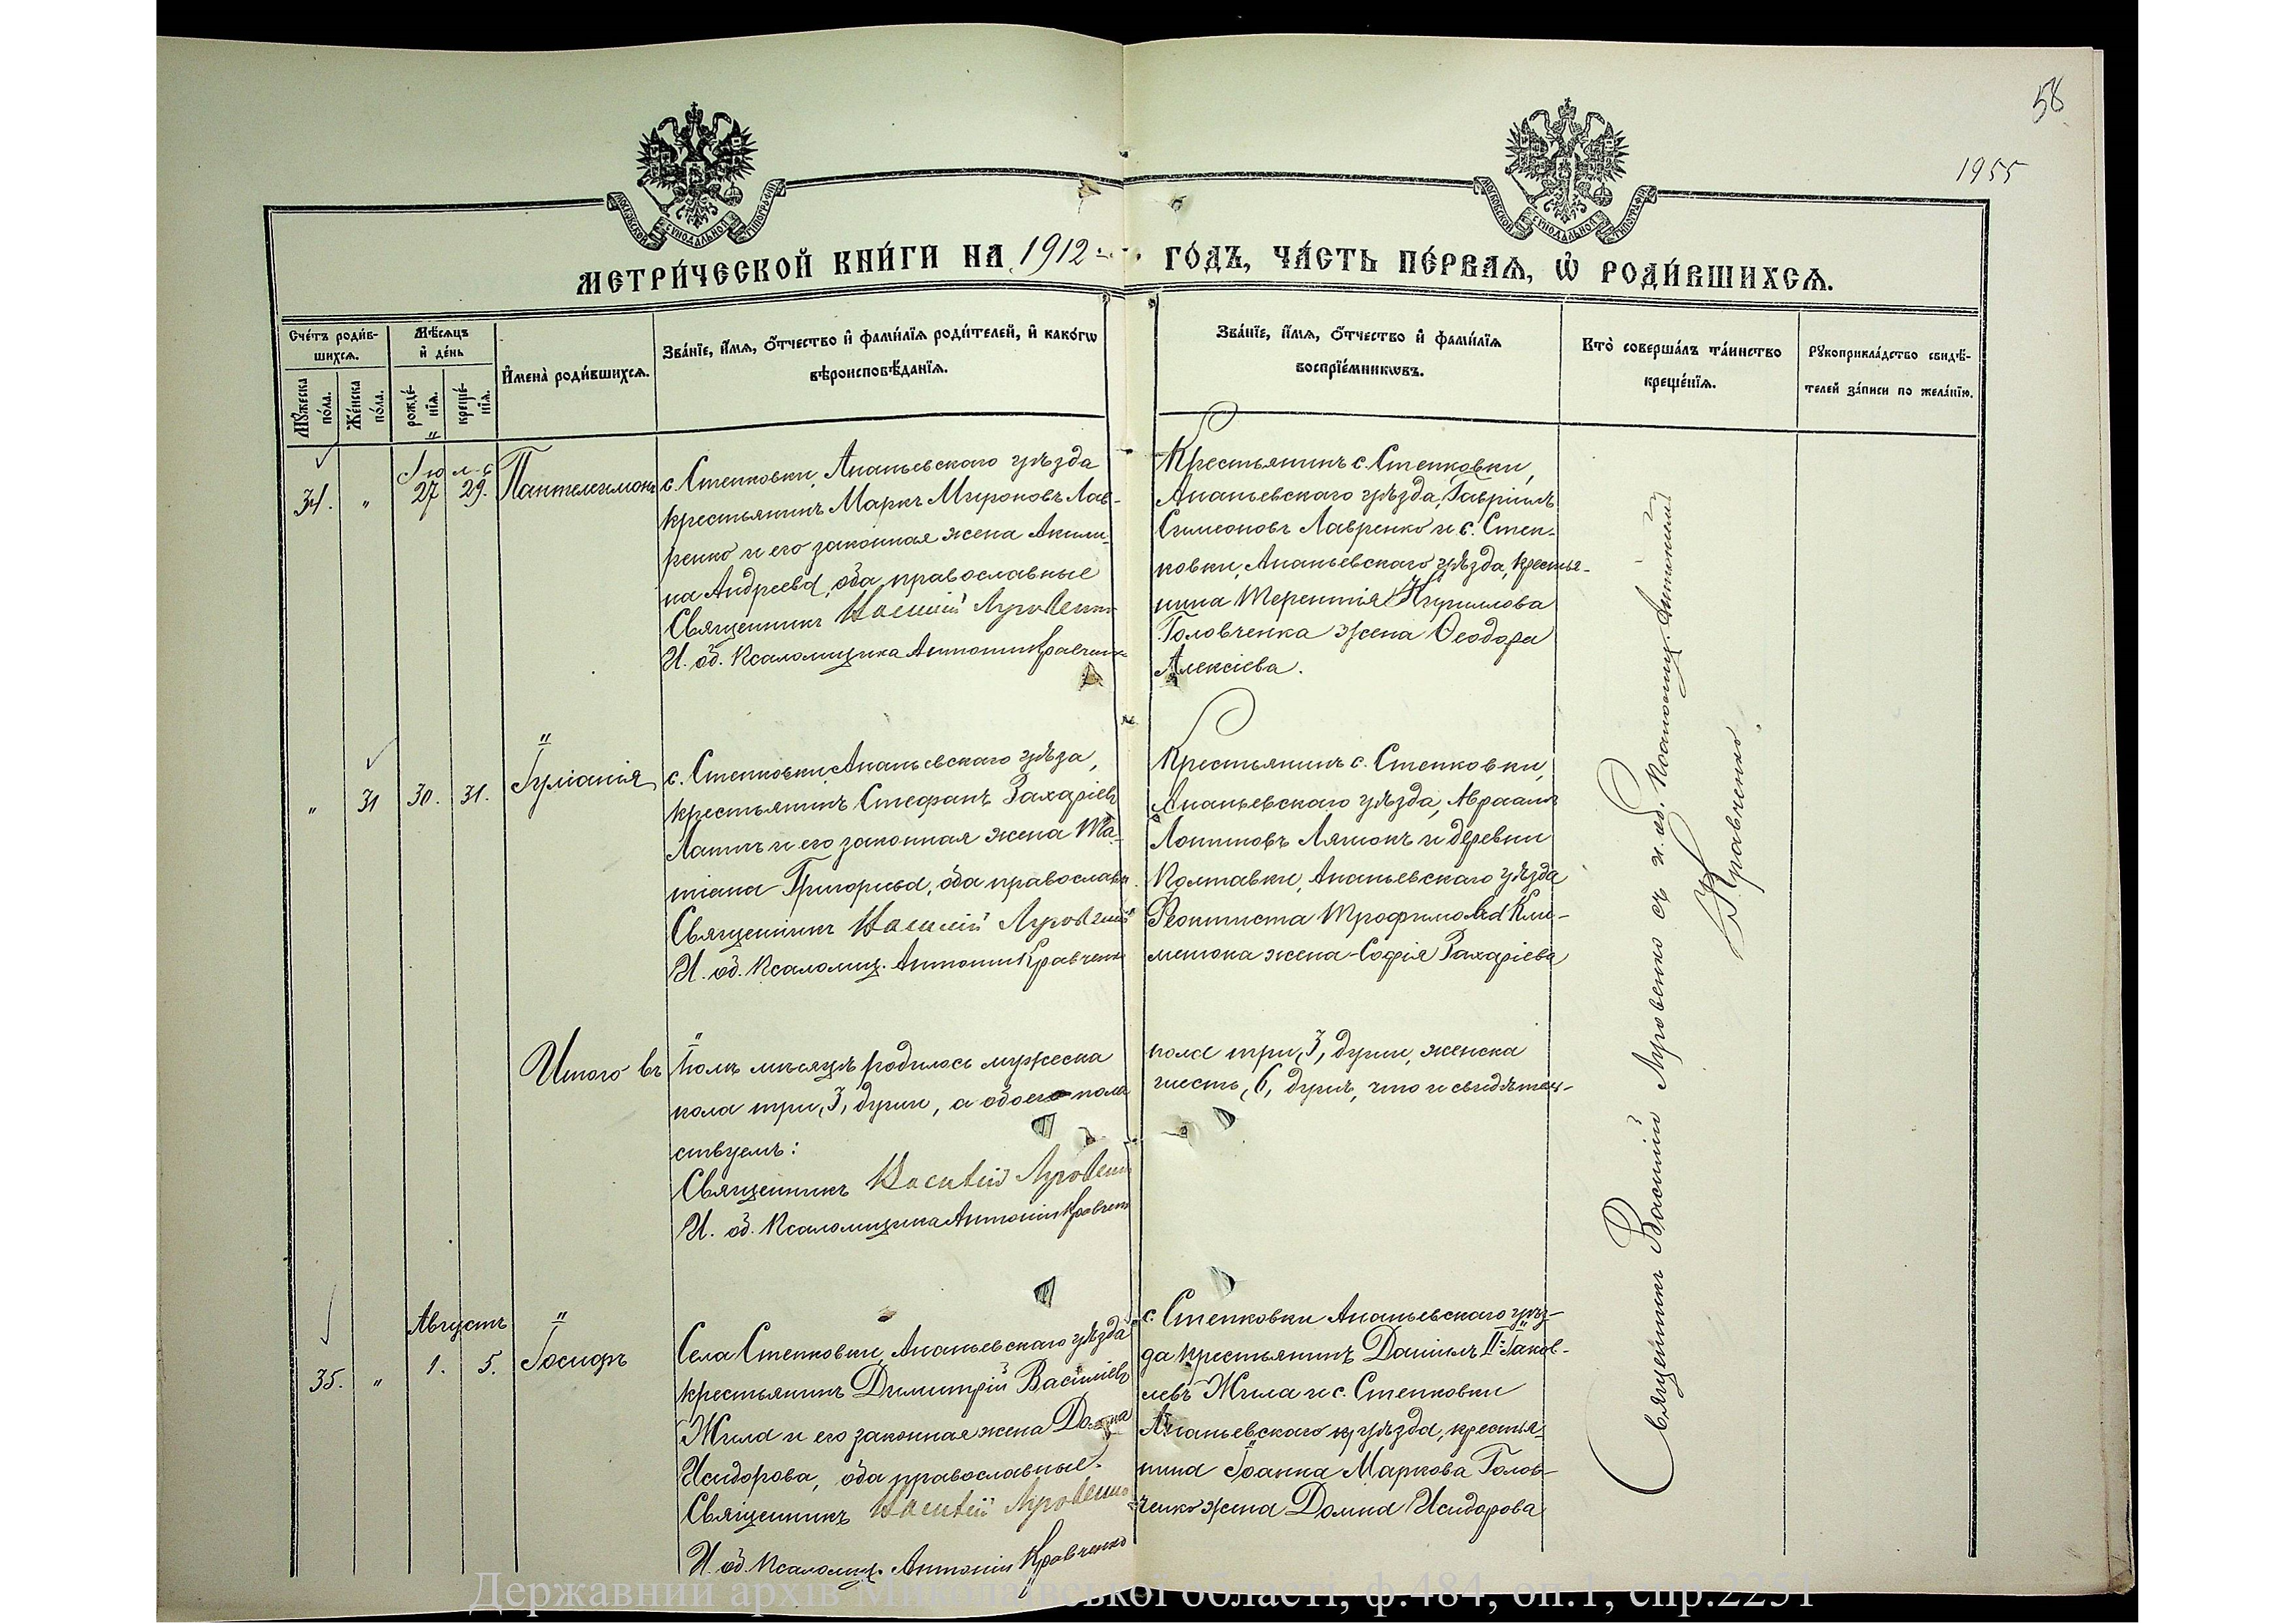 58
1955
МОСКОВСКОЙ СѴНОДАЛЬНОЙ ТИПОГРАФІИ
МОСКОВСКОЙ СѴНОДАЛЬНОЙ ТИПОГРАФІИ
МЕТРИ́ЧЕСКОЙ КНИ́ГИ НА 1912 ГО́ДЪ, ЧА́СТЬ ПЕ́РВАѦ, Ѡ҆ РОДИ́ВШИХСѦ.
Сче́тъ роди́в-
шихсѧ.
Мѹ́жеска по́ла.
Же́нска по́ла.
Мѣ́сѧцъ
и҆ де́нь
рожде́-нїѧ.
креще́-нїѧ.
И҆мена̀ роди́вшихсѧ.
Зва́нїе, и҆́мѧ, ѻ҆́тчество и҆ фами́лїѧ роди́телей, и҆ како́гѡ
вѣроисповѣ́данїѧ.
Зва́нїе, и҆́мѧ, ѻ҆́тчество и҆ фами́лїѧ
воспрїе́мникѡвъ.
Кто̀ соверша́лъ та́инство
креще́нїѧ.
Рꙋкоприкла́дство свидѣ́-
телей за́писи по жела́нїю.
Іюль
34. " 27 29. Пантелеимонъ
с. Степковки, Ананьевскаго уѣзда
крестьянинъ Маркъ Мироновъ Лав-
ренко и его законная жена Акили-
на Андреева, оба православные
Священникъ Василій Луговенко
И. об. Псаломщика Антоній Кравченко
Крестьянинъ с. Степковки,
Ананьевскаго уѣзда, Гавріилъ
Симеоновъ Лавренко и с. Степ-
ковки, Ананьевскаго уѣзда, крестья-
нина Терентія Кириллова
Головченка жена Ѳеодора
Алексіева.
" 31 30. 31. Іуліанія
с. Степковки, Ананьевскаго уѣза,
крестьянинъ Стефанъ Захаріевъ
Лапинъ и его законная жена Та-
тіана Григорьева, оба православн.
Священникъ Василій Луговенко
И. об. Псаломщ. Антоній Кравченко
Крестьянинъ с. Степковки,
Ананьевскаго уѣзда, Авраамъ
Логиновъ Ляшокъ и деревни
Полтавки, Ананьевскаго уѣзда
Ѳеоктиста Трофимова Кли-
менюка жена Софія Захаріева
Итого въ Іюлѣ мѣсяцѣ родилось мужеска
пола три, 3, души, а обоего пола
ствуемъ:
Священникъ Василій Луговенко
И. об. Псаломщика Антоній Кравченко
пола три, 3, души, женска
шесть, 6, душъ, что и свидѣтель-
Августъ
35. " 1. 5. Іосифъ
Села Степковки, Ананьевскаго уѣзда
крестьянинъ Димитрій Василіевъ
Жила и его законная жена Домна
Исидорова, оба православные.
Священникъ Василій Луговенко
И. об. Псаломщ. Антоній Кравченко
с. Степковки Ананьевскаго уѣз-
да крестьянинъ Даніилъ II Іаков-
левъ Жила и с. Степковки
Ананьевскаго уѣзда, крестья-
нина Іоанна Маркова Голов-
ченко жена Домна Исидорова
Священникъ Василій Луговенко съ и. об. Псаломщ. Антоніемъ
Кравченко.
Державний архів Миколаївської області, ф.484, оп.1, спр.2251